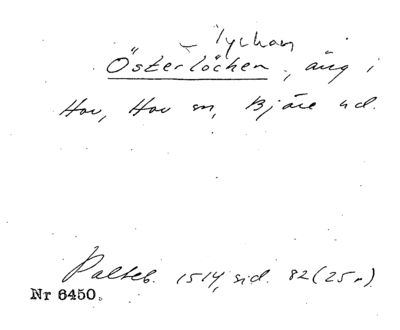 – Tyckan
Österlöcken, äng i
Hov, Hov sn, Bjäre hd.
Palteb. 1514, sid. 82 (25 r)
Nr 6450.